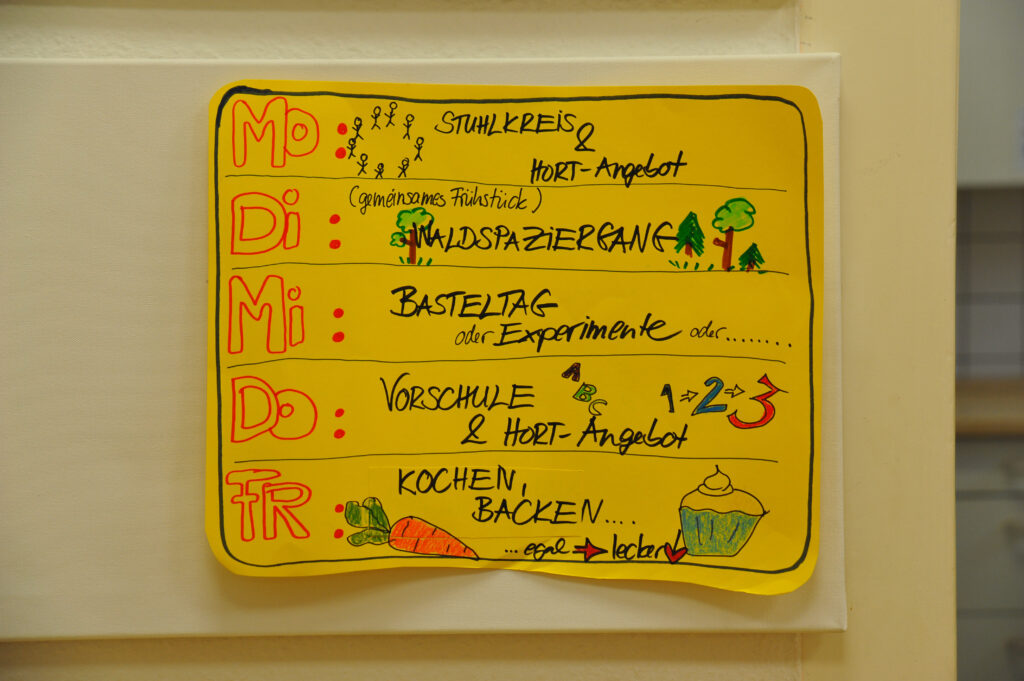 MO: STUHLKREIS
&
HORT-Angebot
(gemeinsames Frühstück)
Di: WALDSPAZiERGANG
Mi: BASTELTAG
oder Experimente oder........
Do: VORSCHULE ABC 1⇒2⇒3
& HORT-Angebot
FR: KOCHEN,
BACKEN....
...egal ➔ lecker